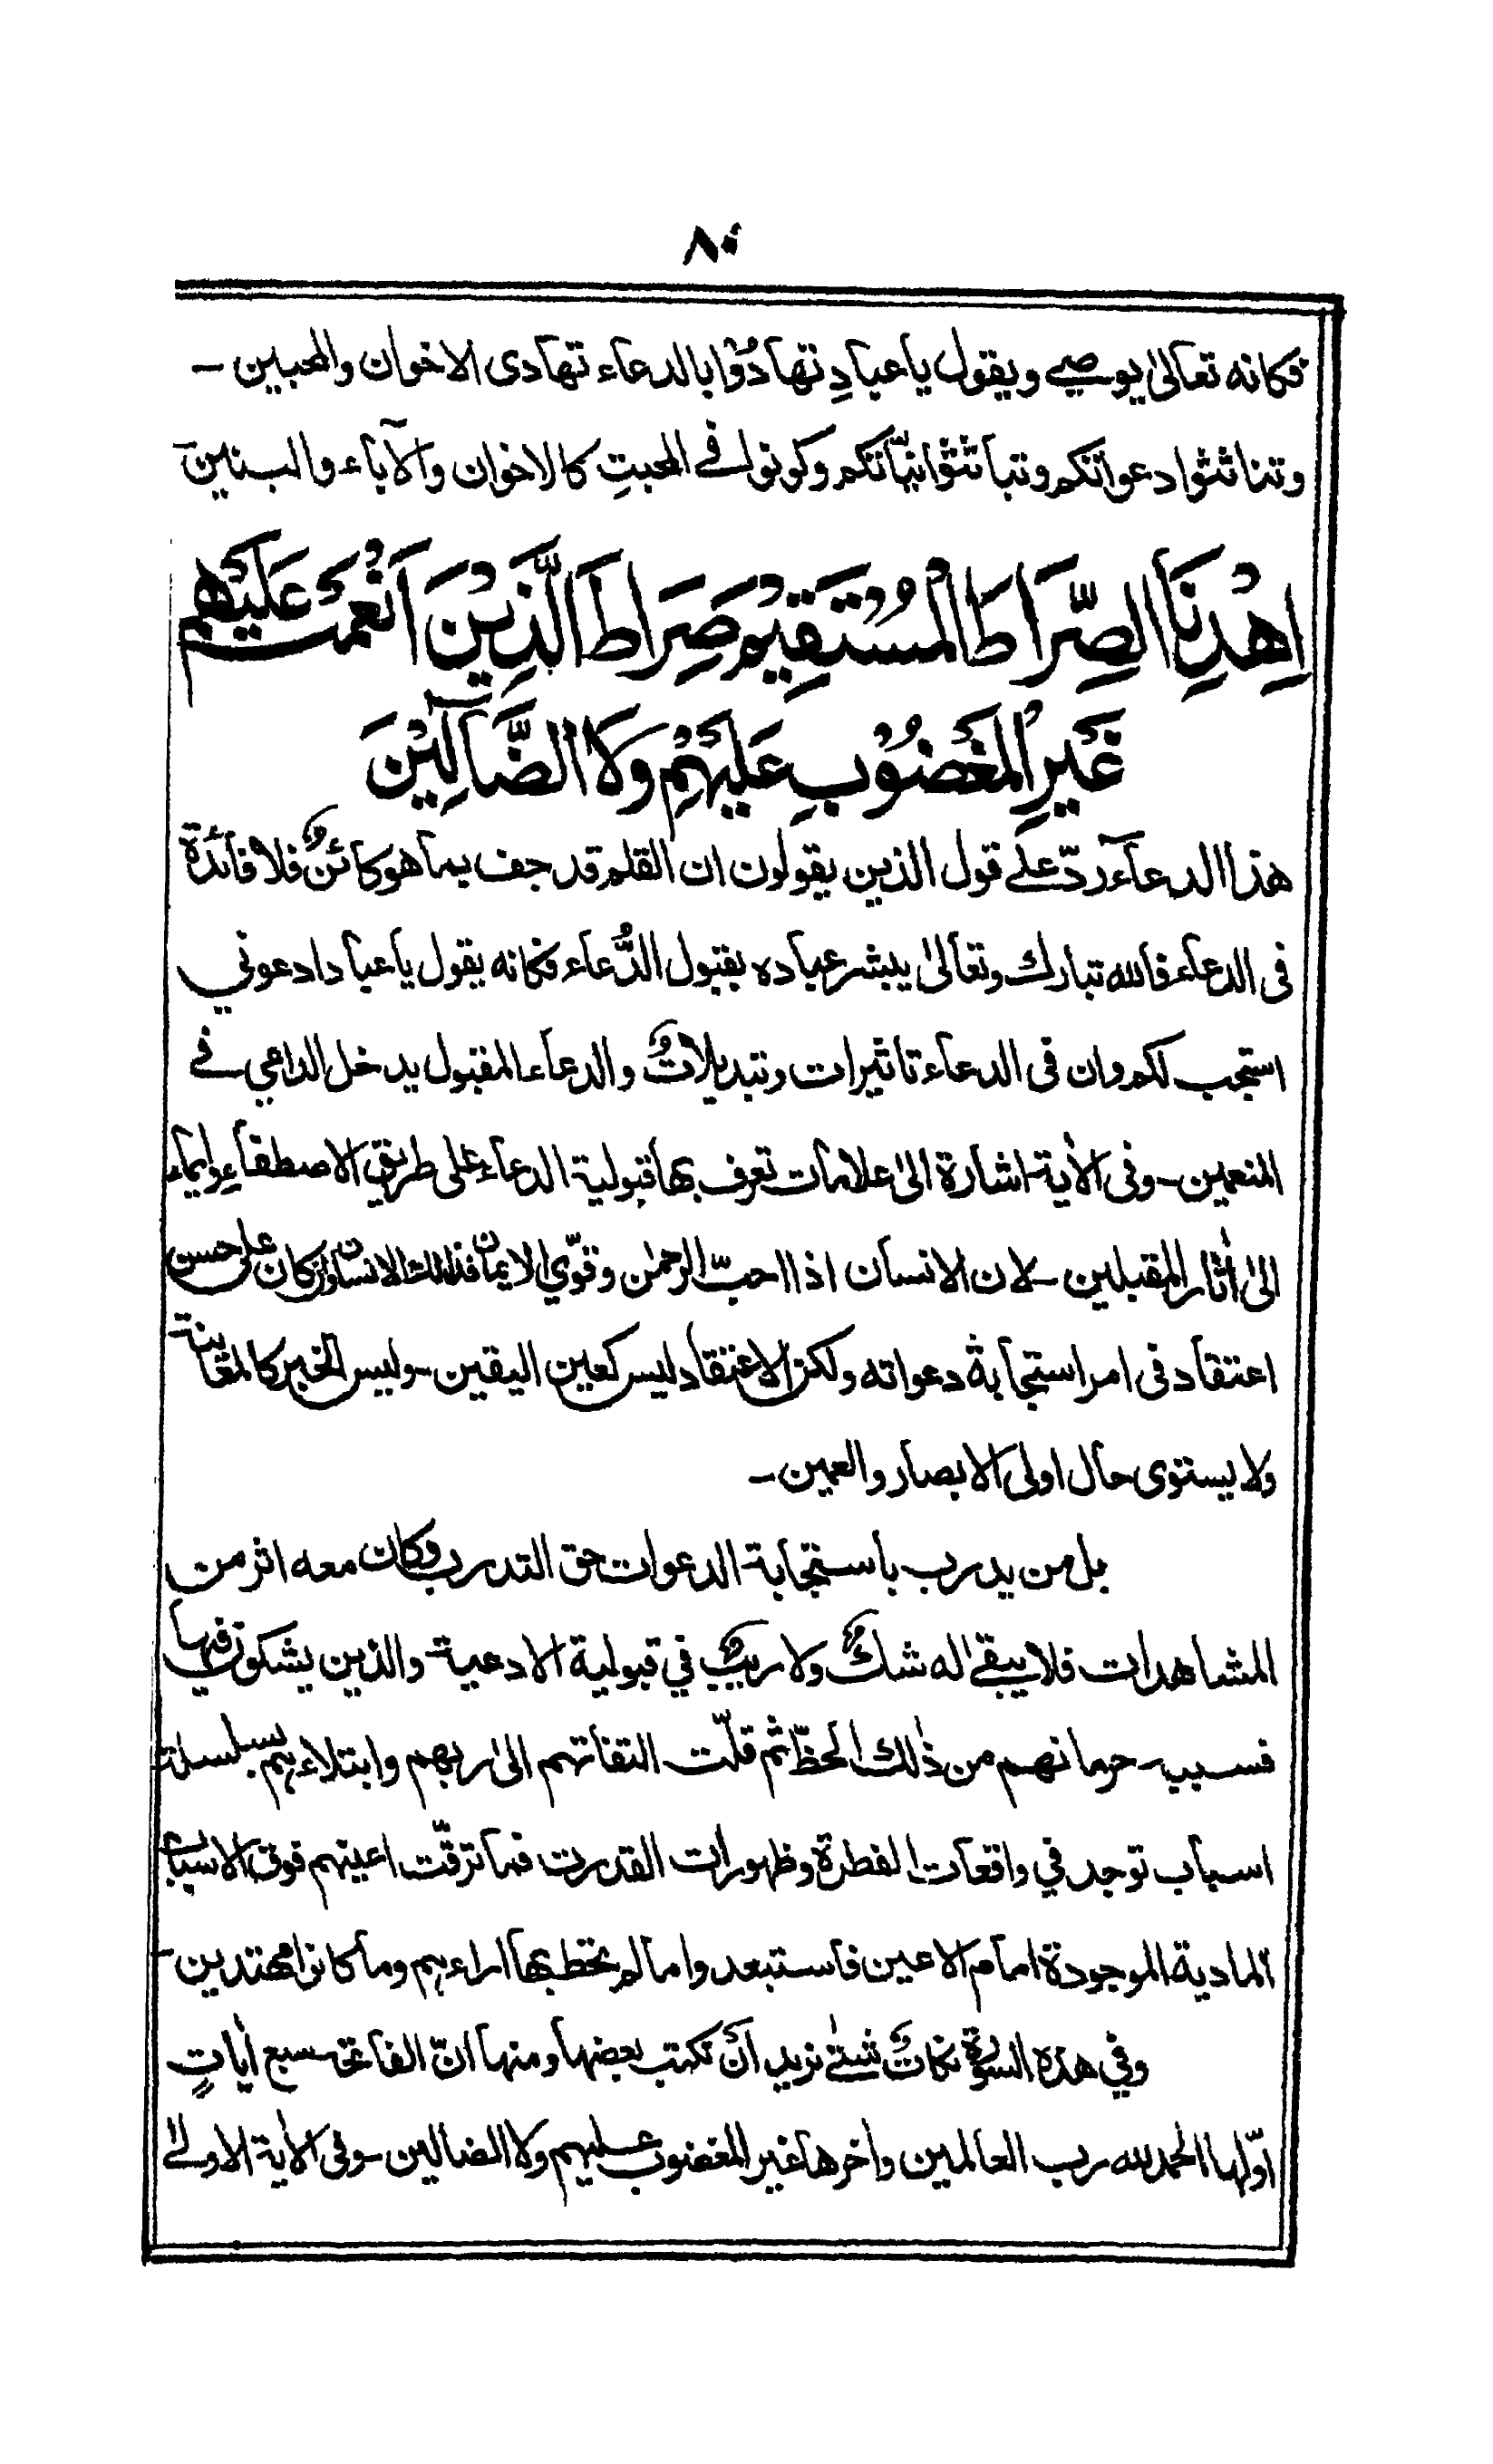 ٨٠
فكانه تعالىٰ يوصے ويقول يا عبادِ تهادَوْا بالدعاء تهادى الاخوان والمحبين ۔
وتناثثوا دعواتكم وتباثثوا نيّاتكم وكونوا فے المحبتِ كالاخوان والآباء والبنين ۔
اِهْدِنَا الصِّرَاطَ الْمُسْتَقِيْمَ صِرَاطَ الَّذِيْنَ اَنْعَمْتَ عَلَيْهِمْ
غَيْرِ الْمَغْضُوْبِ عَلَيْهِمْ وَلَا الضَّآلِّيْنَ
هذا الدعآء ردّ علےٰ قول الذين يقولون ان القلم قد جف بما هو كائنٌ فلا فائدة
فى الدعاء فالله تبارك وتعالىٰ يبشر عباده بقبول الدُّعاء فكانه يقول يا عباد ادعوني
استجب لكم وان فى الدعاء تاثيرات وتبديلاتٌ والدعاء المقبول يدخل الداعي فے
المنعمين ۔ وفى الاٰية اشارة الىٰ علامات تعرف بها قبولية الدعاء على طريق الاصطفاءِ وايماء
الىٰ اٰثار المقبلين ۔ لان الانسان اذا احبّ الرحمٰن وقوّي الايمان فذالك الانسان وان كان على حسن
اعتقاد فى امر استجابة دعواته ولكن الاعتقاد ليس كعين اليقين ۔ وليس الخبر كالمعاينة
ولا يستوى حال اولى الابصار والعمين ۔
بل من يدرب باستجابة الدعوات حق التدرب وكان معه اثر من
المشاهدات فلا يبقےٰ له شكٌ ولا ريبٌ في قبولية الادعية والذين يشكون فيها
فسبب حرمانهم من ذٰلك الحظّ ثم قلّت التفاتهم الىٰ ربهم وابتلاءهم بسلسلة
اسباب توجد في واقعات الفطرة وظهورات القدرت فما ترقّت اعينهم فوق الاسباب
المادية الموجودة امام الاعين فاستبعدوا ما لم تحط بها اراءهم وما كانوا مهتدين ۔
وفي هذه السورة نكاتٌ شتّےٰ نريد انْ نكتب بعضها ومنها انّ الفاتحة سبع اٰياتٍ
اوّلها الحمد لله رب العالمين واٰخرها غير المغضوب عليهم ولا الضالين ۔ وفى الاٰية الاولےٰ